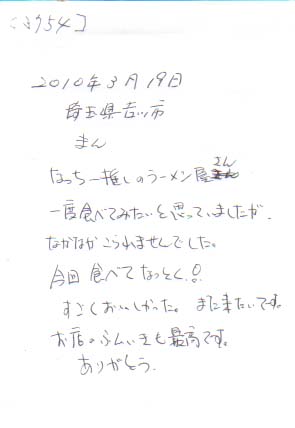 2010年3月19日
埼玉県吉川市
まん
なっち一推しのラーメン屋さん
一度食べてみたいと思っていましたが、
なかなかこられませんでした。
今回食べてなっとく!!
すごくおいしかった。また来たいです。
お店のふんいきも最高です。
ありがとう。